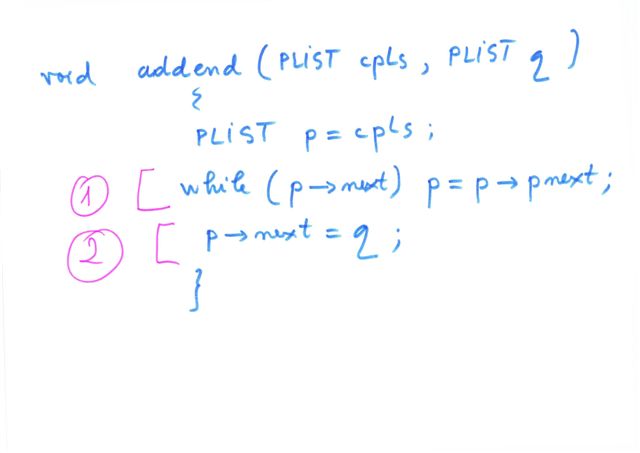 void addend (PLIST cpLs, PLIST q)
{
PLIST p = cpLs;
1 [ while (p→next) p = p → pnext;
2 [ p→next = q;
}